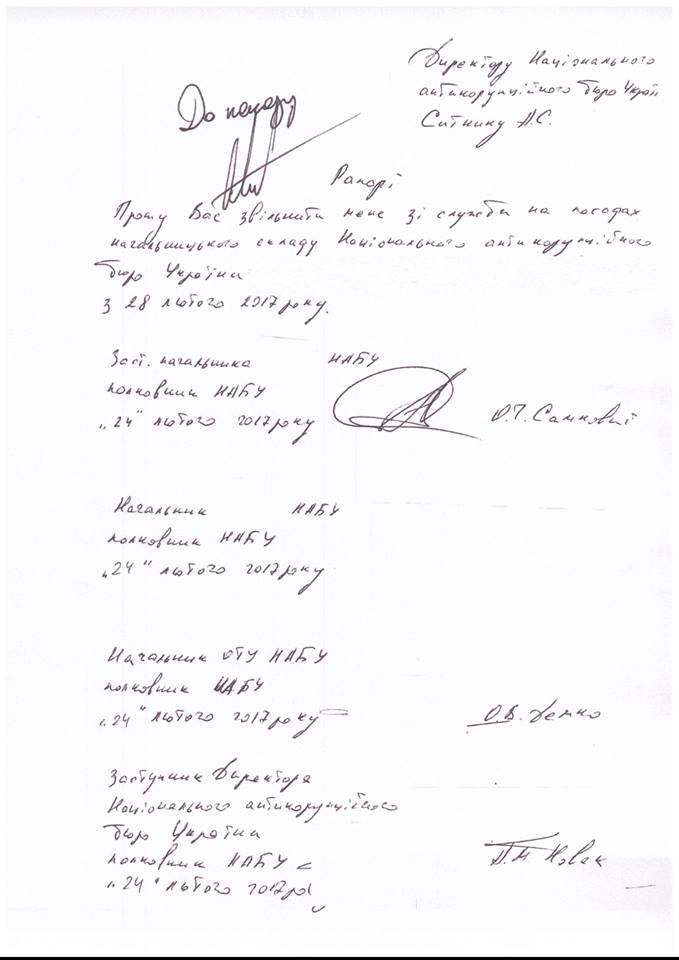 Директору Національного
антикорупційного бюро Украї
Ситнику А.С.
До наказу
Рапорт
Прошу Вас звільнити мене зі служби на посадах
начальницького складу Національного антикорупційного
бюро України
з 28 лютого 2017 року.
Заст. начальника НАБУ
полковник НАБУ
„24" лютого 2017 року О.Г. Самковий
Начальник НАБУ
полковник НАБУ
„24" лютого 2017 року
Начальник ОТУ НАБУ
полковник НАБУ
„24" лютого 2017 року О.В. Демко
Заступник Директора
Національного антикорупційного
бюро України
полковник НАБУ
„24" лютого 2017 ро Новак